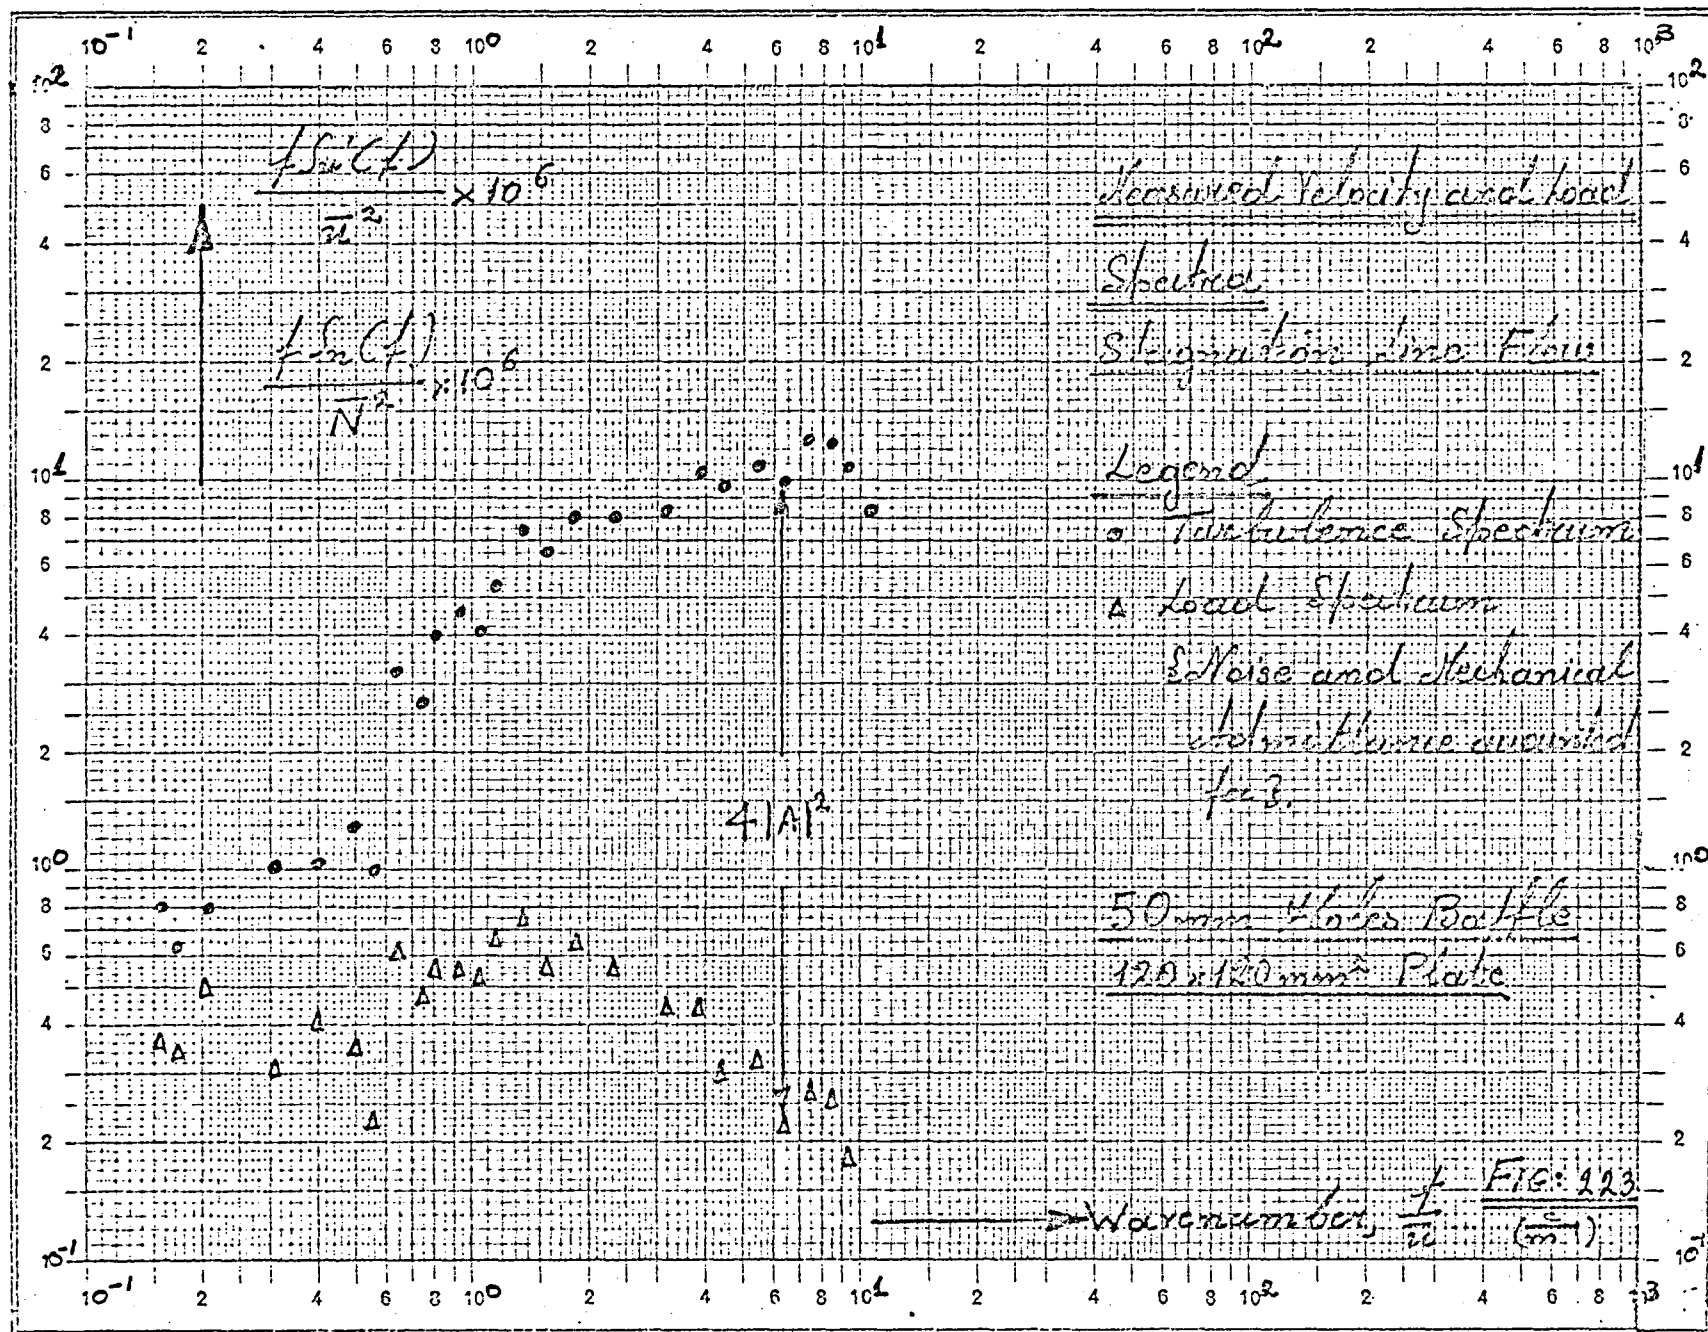 10⁻¹ 2 4 6 8 10⁰ 2 4 6 8 10¹ 2 4 6 8 10² 2 4 6 8 10³
10² 8 6 4 2 10¹ 8 6 4 2 10⁰ 8 6 4 2 10⁻¹
f Su'(f)
x 10⁶
ū²
f Sn(f)
x 10⁶
N̄²
Measured Velocity and Load
Spectra
Stagnation Line Flow
Legend
o Turbulence Spectrum
Δ Load Spectrum
{Noise and Mechanical
Admittance accounted
for}.
4|A|²
50mm Holes Baffle
120x120mm² Plate
FIG: 223
Wavenumber, f/ū (c/m)
10² 8 6 4 2 10¹ 8 6 4 2 10⁰ 8 6 4 2
10⁻¹ 2 4 6 8 10⁰ 2 4 6 8 10¹ 2 4 6 8 10² 2 4 6 8